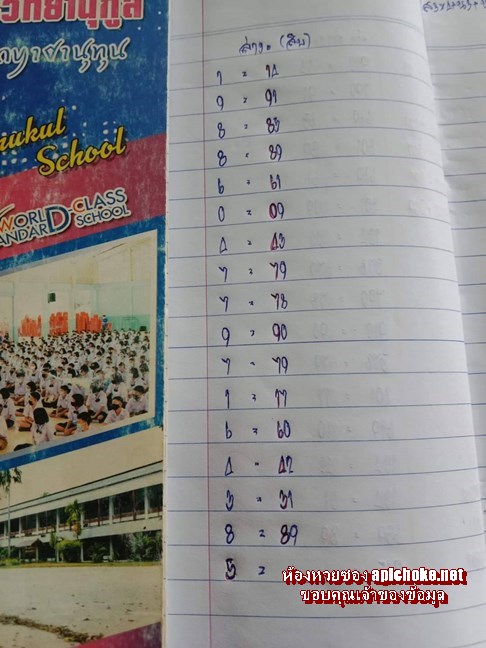 วิทยานุกูล
nukul
School
WORLD-CLASS
STANDARD SCHOOL
ล่าง = (สิบ)
1 = 14
9 = 91
8 = 85
8 = 89
6 = 61
0 = 09
4 = 43
7 = 79
7 = 78
9 = 90
7 = 79
1 = 17
6 = 60
4 = 42
3 = 31
8 = 89
5 =
ห้องหวยซอง apichoke.net
ขอบคุณเจ้าของข้อมูล